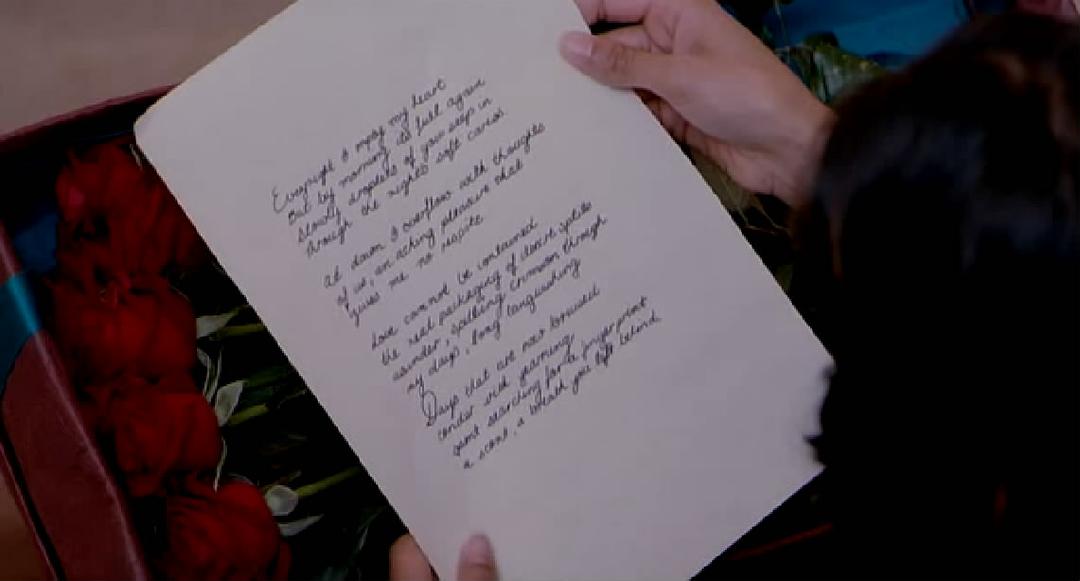 Everynight I empty my heart
But by morning its full again
Slowly droplets of you seep in
through the nights soft caress
At dawn I overflow with thoughts
of us, an aching pleasure that
gives me no respite
Love cannot be contained
the neat packaging of desire splits
asunder, spilling crimson through
my days, long languishing
Days that are now bruised
tender with yearning
spent searching for a fingerprint
a scent, a breath you left behind